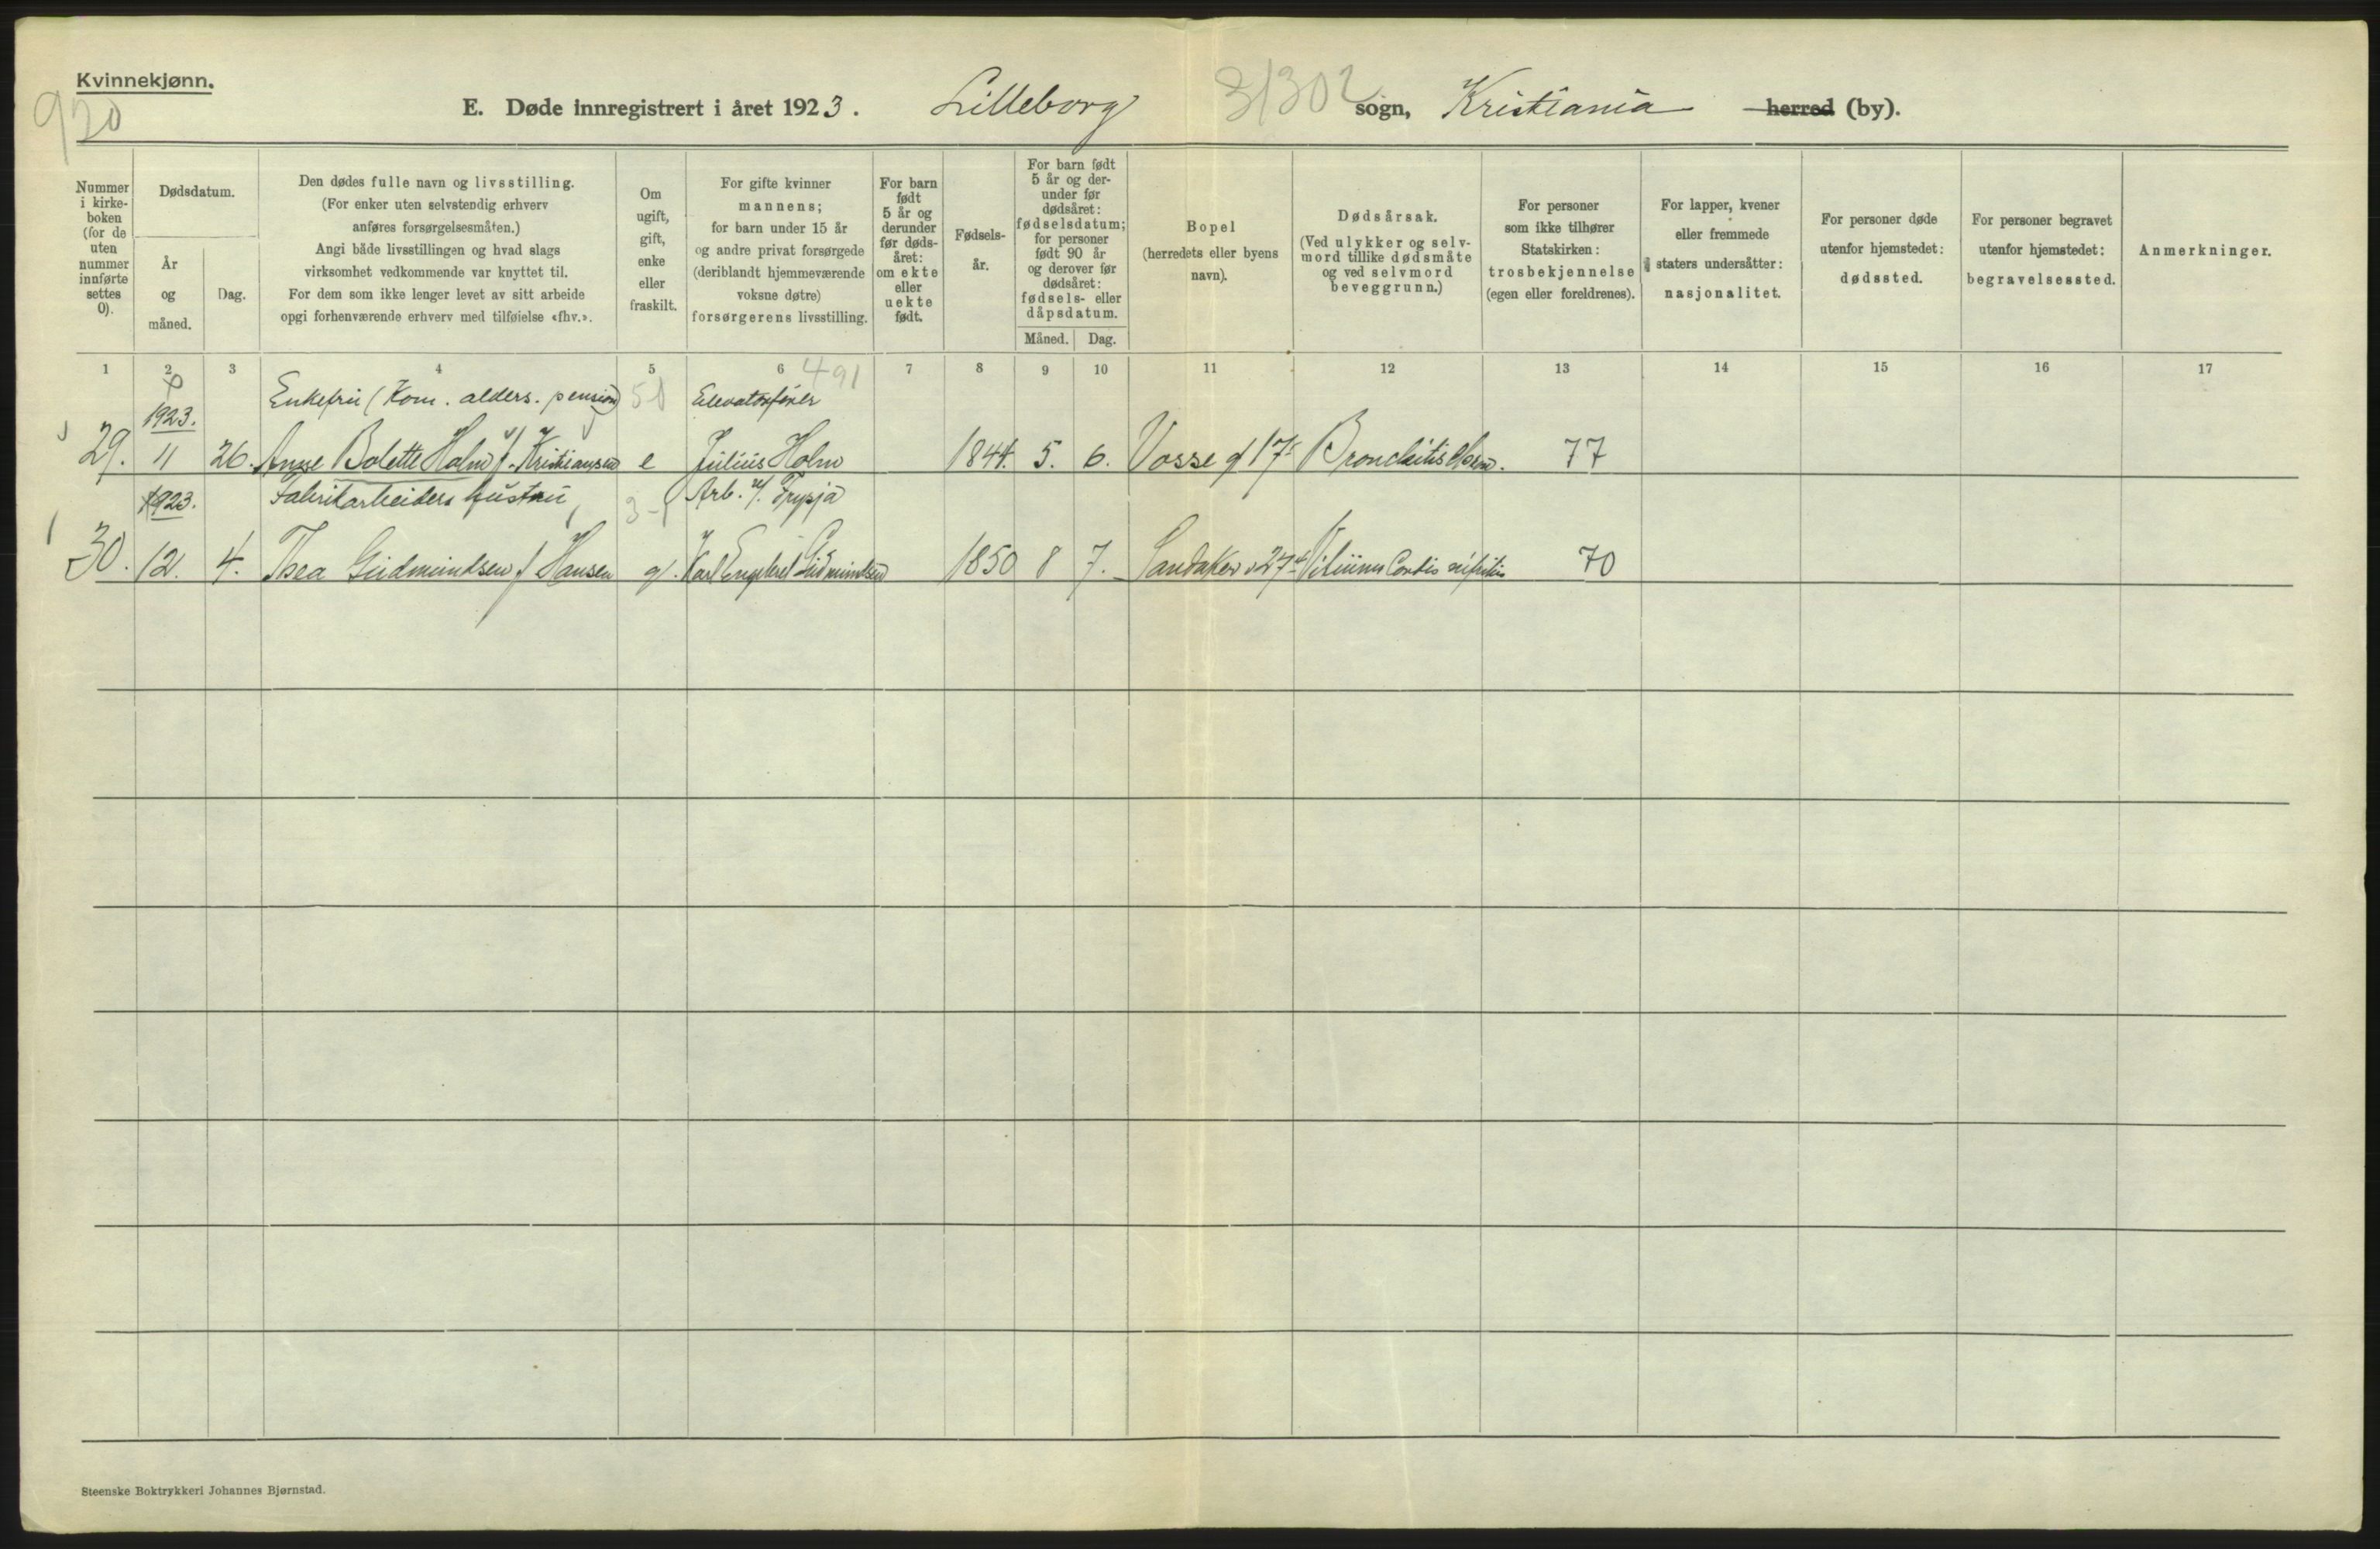 Kvinnekjønn.
920
E. Døde innregistrert i året 1923. Lilleborg 31302 sogn, Kristiania herred (by).
Nummer i kirke-boken (for de uten nummer innførte settes 0).
Dødsdatum.
År og måned.
Dag.
Den dødes fulle navn og livsstilling.
(For enker uten selvstendig erhverv
anføres forsørgelsesmåten.)
Angi både livsstillingen og hvad slags
virksomhet vedkommende var knyttet til.
For dem som ikke lenger levet av sitt arbeide
opgi forhenværende erhverv med tilføielse «fhv.».
Om ugift, gift, enke eller fraskilt.
For gifte kvinner
mannens;
for barn under 15 år
og andre privat forsørgede
(deriblandt hjemmeværende
voksne døtre)
forsørgerens livsstilling.
For barn født 5 år og derunder før døds-året: om ekte eller uekte født.
Fødsels-år.
For barn født
5 år og der-
under før
dødsåret:
fødselsdatum;
for personer
født 90 år
og derover før
dødsåret:
fødsels- eller
dåpsdatum.
Måned. Dag.
Bopel
(herredets eller byens
navn).
Dødsårsak.
(Ved ulykker og selv-
mord tillike dødsmåte
og ved selvmord
beveggrunn.)
For personer
som ikke tilhører
Statskirken:
trosbekjennelse
(egen eller foreldrenes).
For lapper, kvener
eller fremmede
staters undersåtter:
nasjonalitet.
For personer døde
utenfor hjemstedet:
dødssted.
For personer begravet
utenfor hjemstedet:
begravelsessted.
Anmerkninger.
1 2 3 4 5 6 7 8 9 10 11 12 13 14 15 16 17
491
1923. Enkefru (Kom. alders. pension) Elevatorfører
29. 11 26. Bolette Holm f. Kristiansen e Julius Holm 1844. 5. 6. Vosse g 17 Bronchitis 77
1923. Fabrikarbeiders hustru Arb. v/. Frysja
30. 12. 4. Thea Gudmundsen f Hansen g. Karl Engebret Gudmundsen 1850 8 7. Sandaker v 27 Vitium Cordis 70
Steenske Boktrykkeri Johannes Bjørnstad.